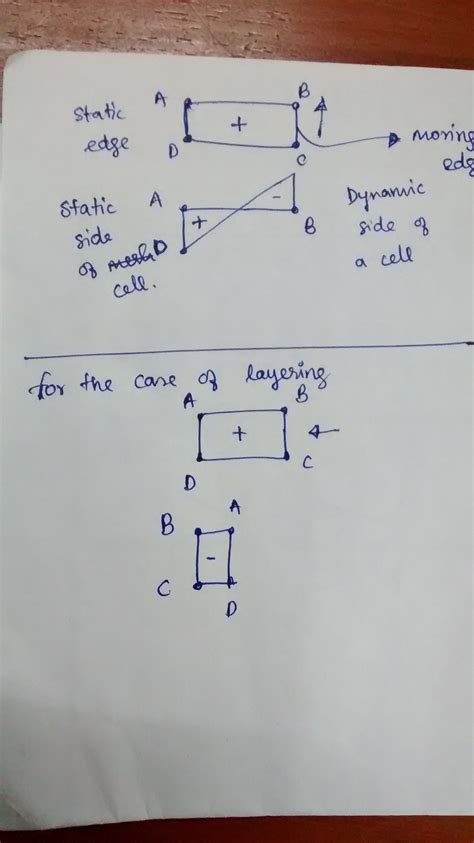 A B
Static + moving
edge D C edg
Static A + - B Dynamic
side side of
of D a cell
cell.
for the case of layering
A B
+
D C
B A
-
C D